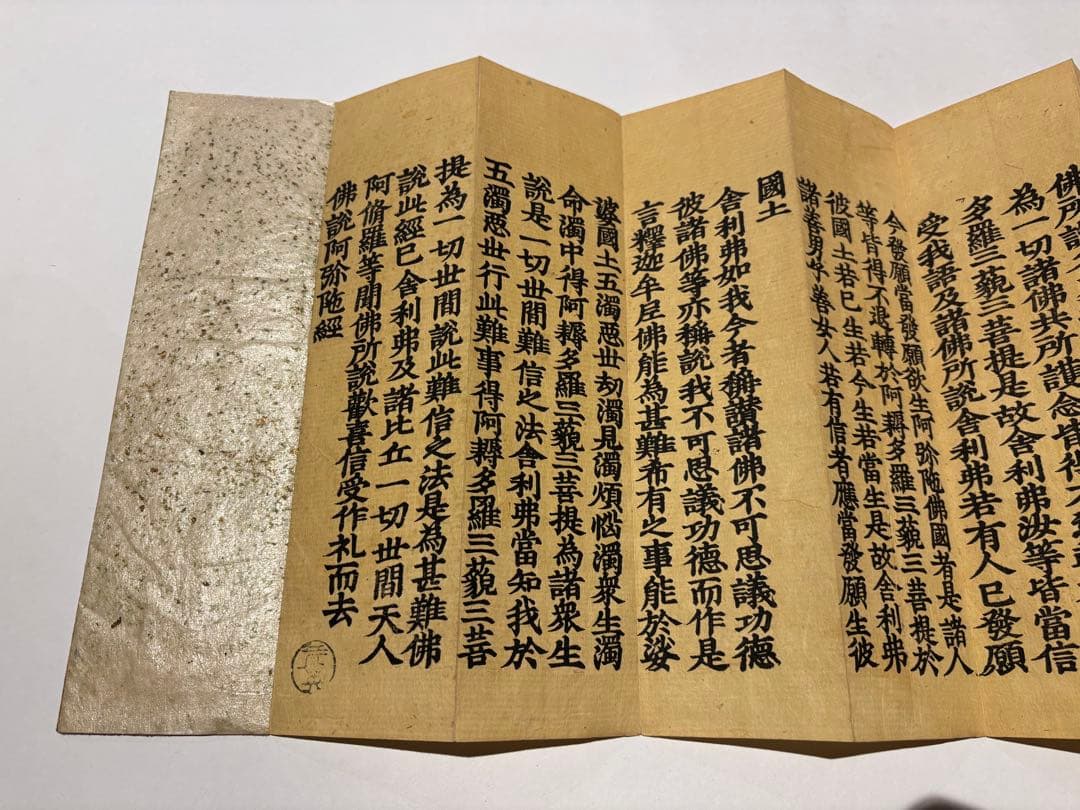 佛所
為一切諸佛共所護念皆得不
多羅三藐三菩提是故舍利弗汝等皆當信
受我語及諸佛所說舍利弗若有人已發願
今發願當發願欲生阿弥陁佛國者是諸人
等皆得不退轉於阿耨多羅三藐三菩提於
彼國土若已生若今生若當生是故舍利弗
諸善男子善女人若有信者應當發願生彼
國土
舍利弗如我今者稱讃諸佛不可思議功德
彼諸佛等亦稱說我不可思議功德而作是
言釋迦牟尼佛能為甚難希有之事能於娑
婆國土五濁惡世劫濁見濁煩惱濁衆生濁
命濁中得阿耨多羅三藐三菩提為諸衆生
說是一切世間難信之法舍利弗當知我於
五濁惡世行此難事得阿耨多羅三藐三菩
提為一切世間說此難信之法是為甚難佛
說此經已舍利弗及諸比丘一切世間天人
阿脩羅等聞佛所說歡喜信受作礼而去
佛說阿弥陁經